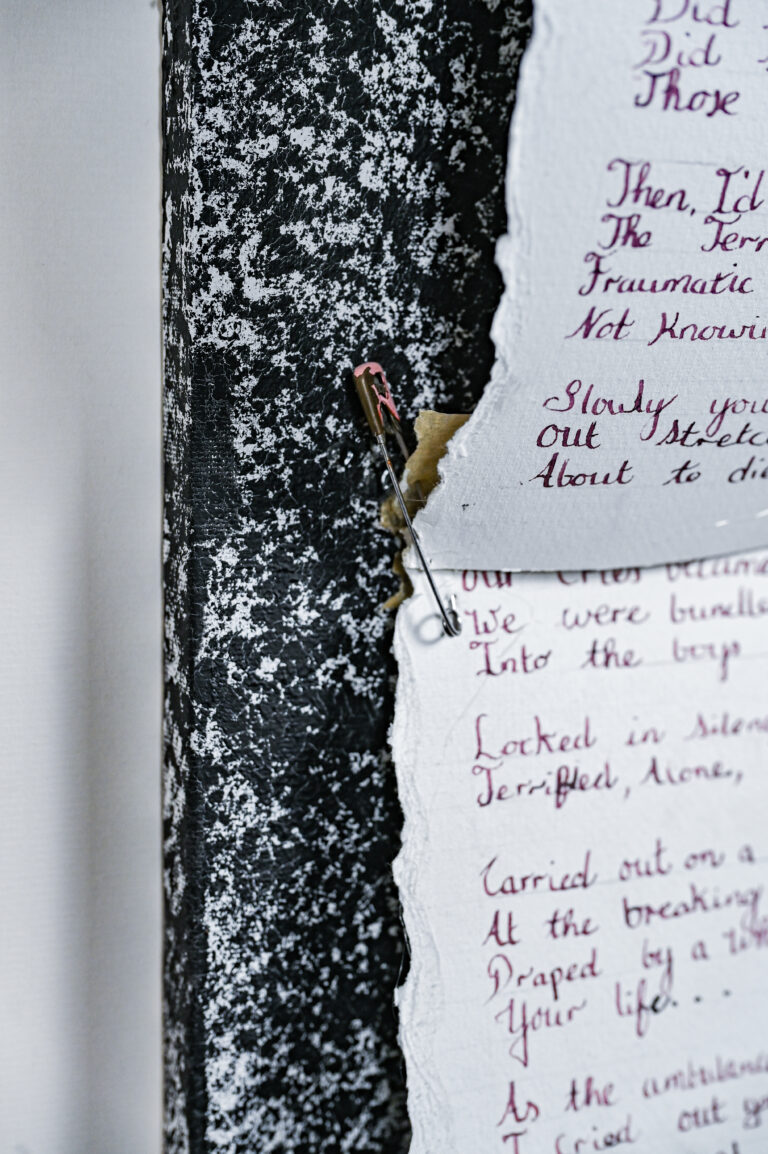 Did
Did
Those
Then, I'd
The Terr
Fraumatic
Not Knowi
Slowly you
out stretc
About to di
our cries became
We were bundle
Into the boys
Locked in silen
Terrified, Alone,
Carried out on a
At the breaking
Draped by a
Your life...
As the ambulanc
I cried out yo